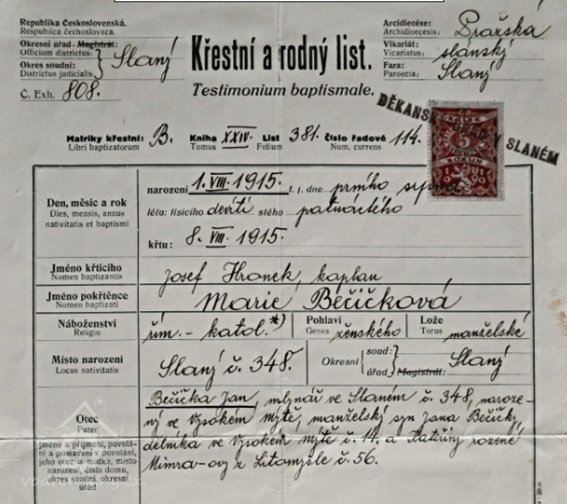 Republika Československá.
Respublica čechoslovaca.
Okresní úřad - Magistrát:
Officium districtus:
Okres soudní:
Districtus judicialis
Slaný
Č. Exh. 808.
Křestní a rodný list.
Testimonium baptismale.
Arcidiecése:
Archidioecesis:
Pražská
Vikariát:
Vicariatus:
slánský
Fara:
Paroecia:
Slaný
DĚKANSKÝ ÚŘAD V SLANÉM
5
KORUN
Matriky křestní: B. Kniha XXIV. List 381. Číslo řadové 114.
Libri baptizatorum Tomus Folium Num. currens
Den, měsíc a rok
Dies, mensis, annus
nativitatis et baptismi
narození 1. VIII. 1915. t. j. dne prvního srpna
léta: tisícího devíti stého patnáctého
křtu: 8. VIII. 1915.
Jméno křtícího
Nomen baptizantis
Josef Hronek, kaplan
Jméno pokřtěnce
Nomen baptizati
Marie Bečičková
Náboženství
Religio
řím. - katol.*)
Pohlaví
Genus
ženského
Lože
Torus
manželské
Místo narození
Locus nativitatis
Slaný č. 348.
Okresní
soud:
úřad, Magistrát:
Slaný
Otec
Pater
jméno a příjmení, povolá-
ní a postavení v povolání,
jeho otec a matka, místo
narození, číslo domu,
okres soudní, okresní
úřad
Bečička Jan, mlynář ve Slaném č. 348, naroze-
ný ve Vysokém Mýtě, manželský syn Jana Bečičky,
dělníka ve Vysokém Mýtě č. 14. a Kateřiny rozené
Mimra-ovy z Litomyšle č. 56.